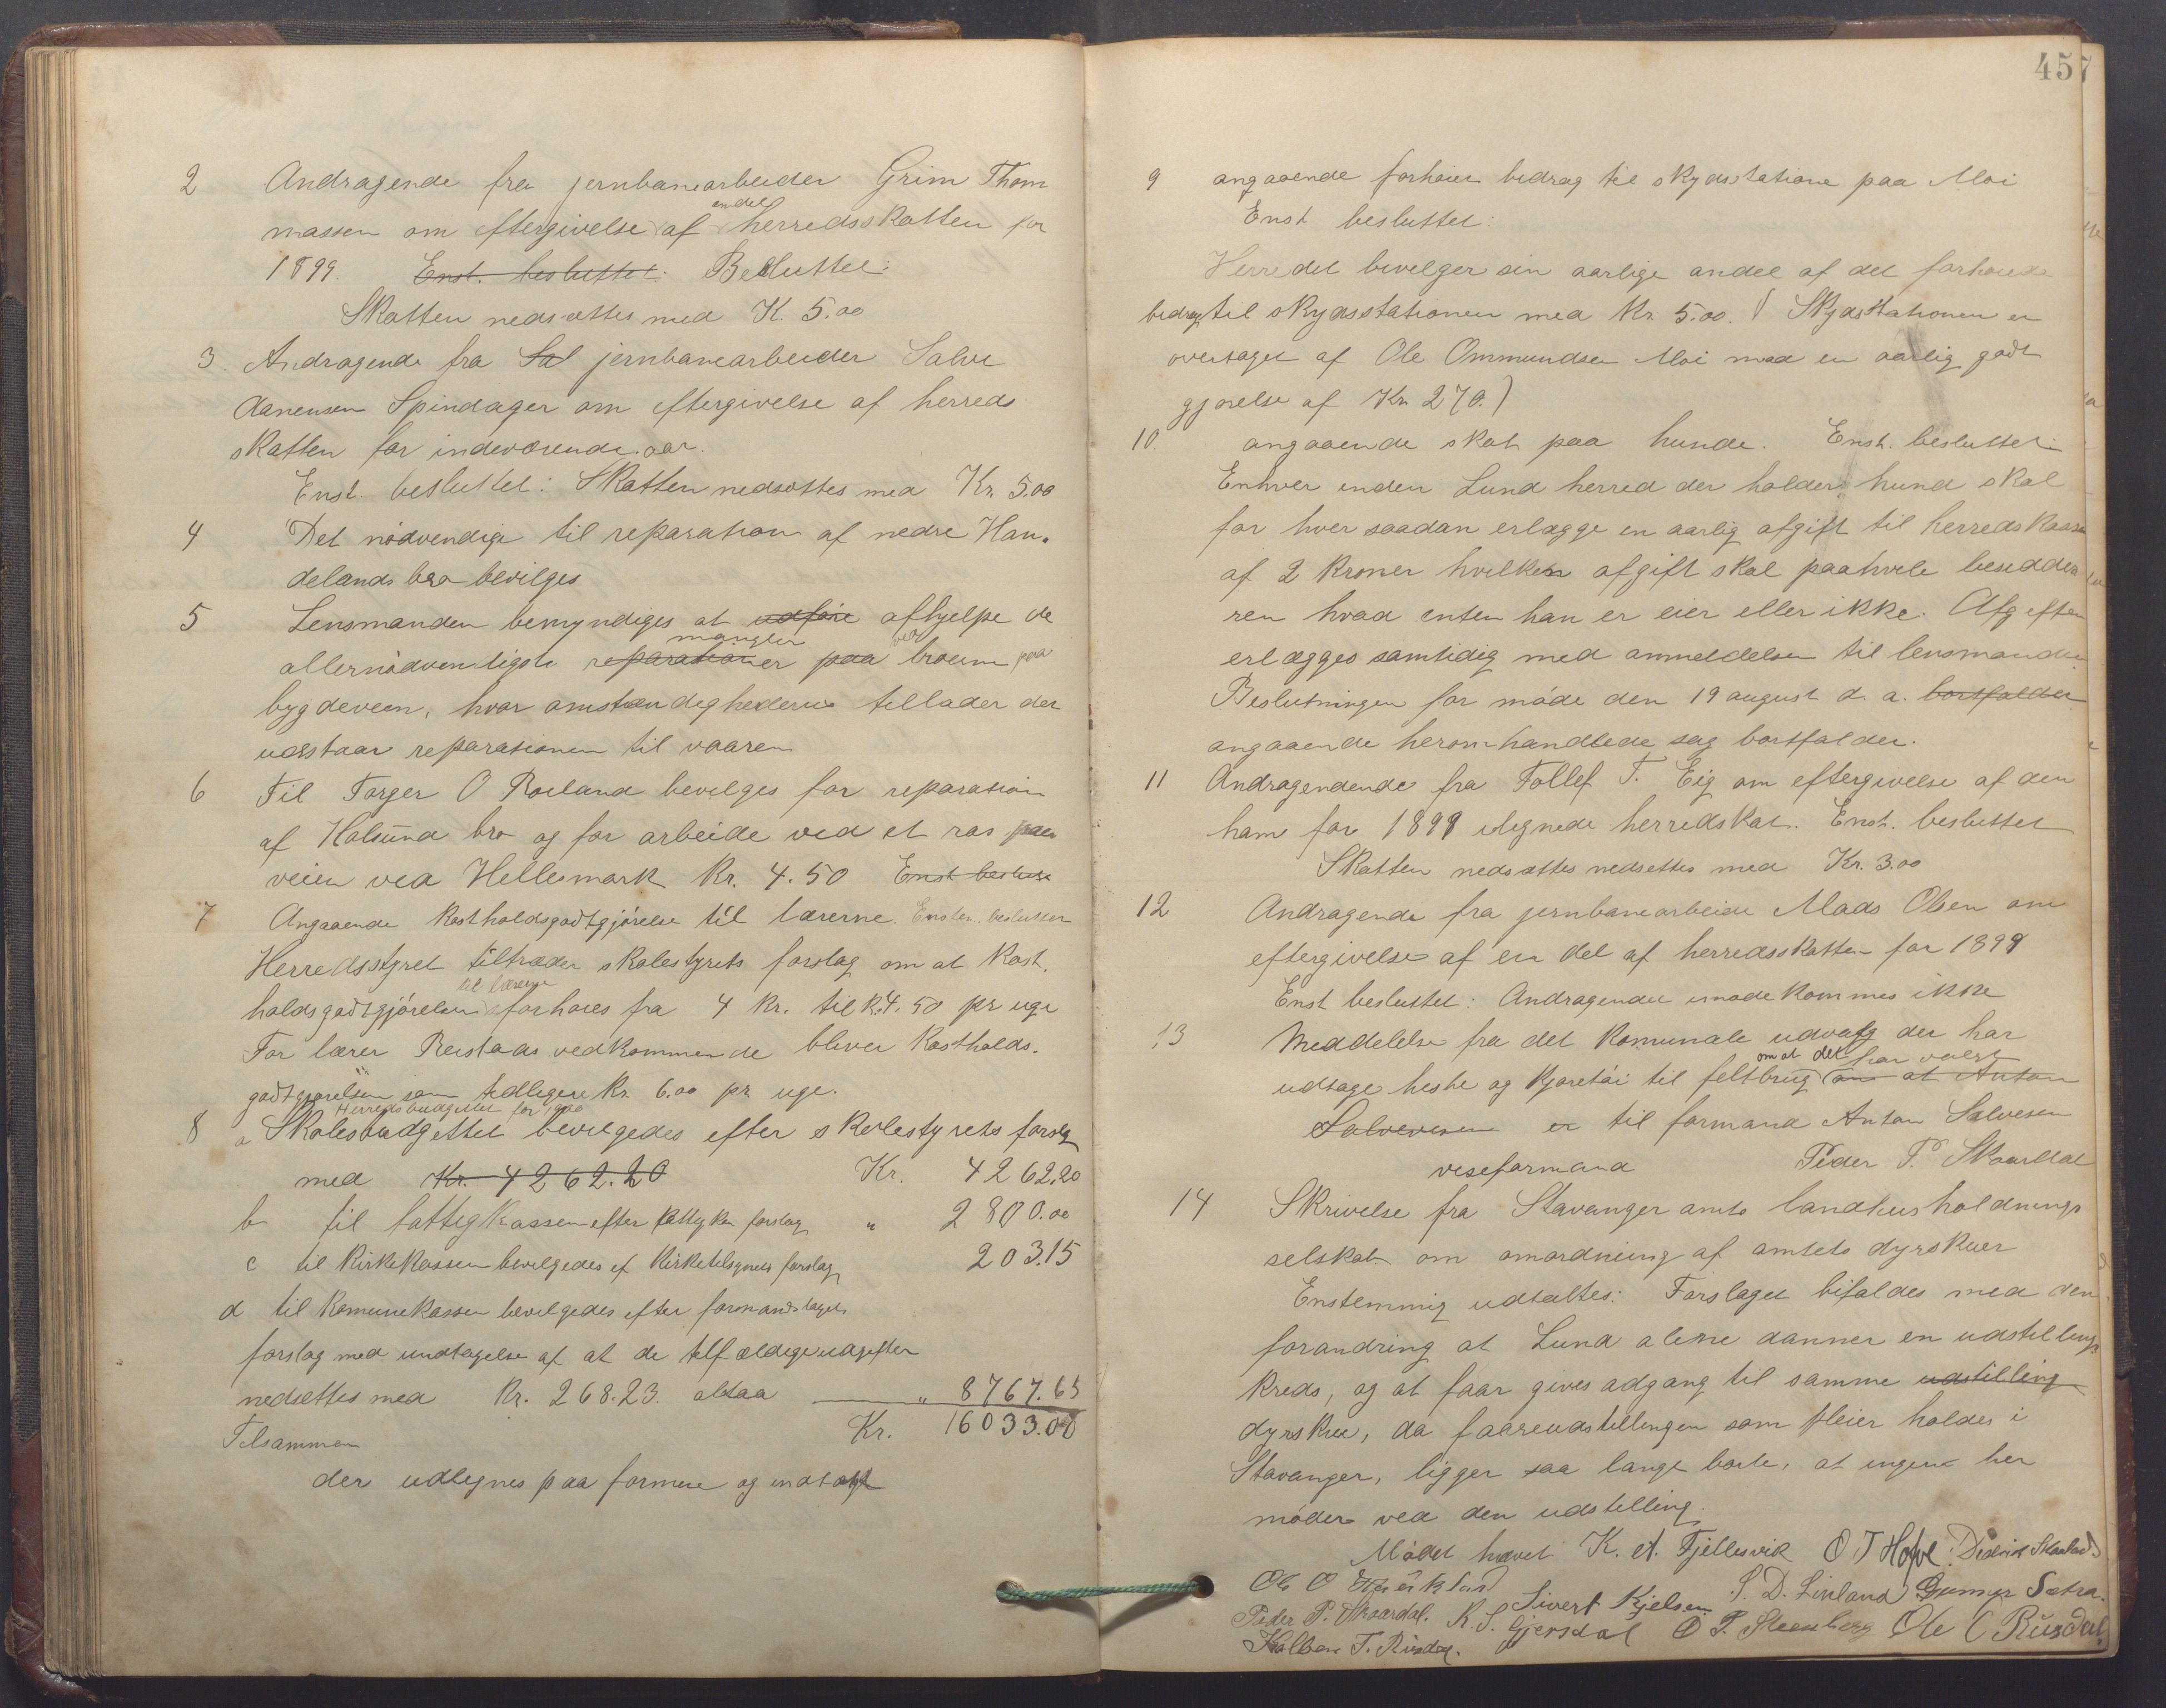 2 Andragende fra jernbanearbeider Grim Thom
massen om eftergivelse af endel herredsskatten for
1899. Enst. besluttet: Besluttet:
Skatten nedsættes med K. 5.00
3. Andragende fra Sal jernbanearbeider Salve
Aanensen Spindager om eftergivelse af herreds
skatten for indeværende aar.
Enst. besluttet: Skatten nedsættes med Kr. 5.00
4 Det nödvendige til reparation af nedre Hau-
delands bro bevilges
5 Lensmanden bemyndiges at udföre afhjelpe de
allernödvendigste reparationer mangler paa ved broerne paa
bygdeveien, hvor omstændighederne tillader det
udstaar reparationen til vaaren
6 Til Torger O Roeland bevilges for reparasion
af Holsund bro og for arbeide ved et ras paa
veien ved Hellesmark Kr. 4.50 Enst beslut
7 Angaaende kostholdsgodtgjörelse til lærerne. Enstem. besluttet
Herredsstyret tiltræder skolestyrets forslag om at kost-
holdsgodtgjörelsen til lærerne forhöies fra 4 kr. til k. 4.50 pr uge
For lærer Reistads vedkommende bliver kostholds-
godtgjörelsen som tidligere kr. 6.00 pr. uge.
8 Herredsbudgettet for 1900
a Skolesbudgettet bevilgedes efter skolestyrets forslag
med Kr. 4262.20 Kr. 4262,20
b til fattigkassen efter fattigkom forslag " 2800.00
c til kirkekassen bevilgedes ef kirketilsynets forslag 203.15
d til komunekassen bevilgedes efter formandskapets
forslag med undtagelse af at de tilfældige udgifter
nedsættes med Kr. 268.23. altsaa " 8767.65
Tilsammen Kr. 16033.00
der udlignes paa formue og indtægt
457
9 angaaende forhöiet bidrag til skydsstatione paa Moi
Enst besluttet:
Herredet bevilger sin aarlige andel af det forhöiede
bidrag til skydsstationen med Kr. 5.00. (Skydsstationen er
overtaget af Ole Ommundsen Moi med en aarlig godt
gjörelse af Kr. 270.)
10. angaaende skat paa hunde. Enst. besluttet:
Enhver inden Lund herred der holder hund skal
for hver saadan erlægge en aarlig afgift til herredskassen
af 2 kroner hvilken afgift skal paahvile besidde
ren hvad enten han er eier eller ikke. Afgiften
erlægges samtidig med anmeldelsen til lensmanden
Beslutningen for möde den 19 august d. a. bortfalder
angaaende heromhandlede sag bortfalder.
11 Andragendende fra Tollef T. Eig om eftergivelse af den
ham for 1899 ilignede herredskat. Enst. besluttet
Skatten nedsættes nedsettes med Kr. 3.00
12 Andragende fra jernbanearbeide Mads Olsen om
eftergivelse af en del af herredsskatten for 1899
Enst besluttet: Andragendet imødekommes ikke
13 Meddelelse fra det komunale udvalg der har
udtage heste og kjöretöi til feltbrug om at det har valgt om at Anton
Salvesen er til formand Anton Salvesen
viseformand Peder P. Skaardal
14 Skrivelse fra Stavanger amts landhusholdnings
selskab om omordning af amtets dyrskuer
Enstemmig udtaltes: Forslaget bifaldes med den
forandring at Lund alene danner en udstillings
kreds, og at faar gives adgang til samme udstilling
dyrskue, da faareudstillingen som pleier holdes i
Stavanger, ligger saa langt borte, at ingen her
möder ved den udstilling.
Mödet hævet K. A. Fjellesvik O T Hofve
Ole O
Sivert Kjelsen S. D. Liviland Gunnar Sætra.
Peder P. Skaardal. R. S. Gjersdal O P. Steenberg Ole Rusdal.
T. Rusdal.